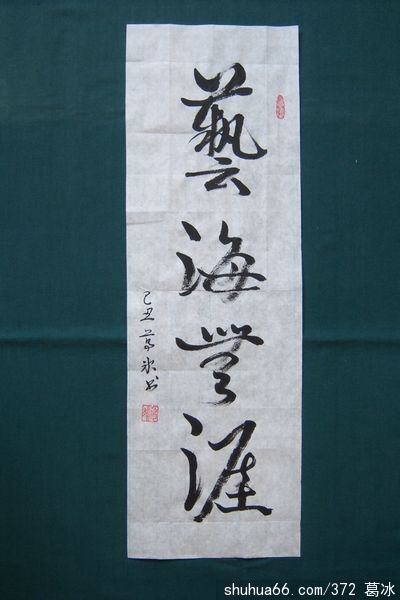 藝海無涯
己丑葛冰书
shuhua66.com/372 葛冰